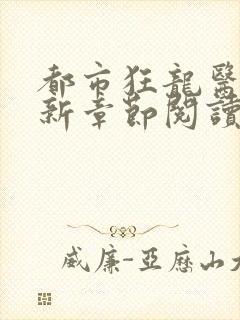 都市狂龍醫
新章節閱讀
威廉-亞歷山大